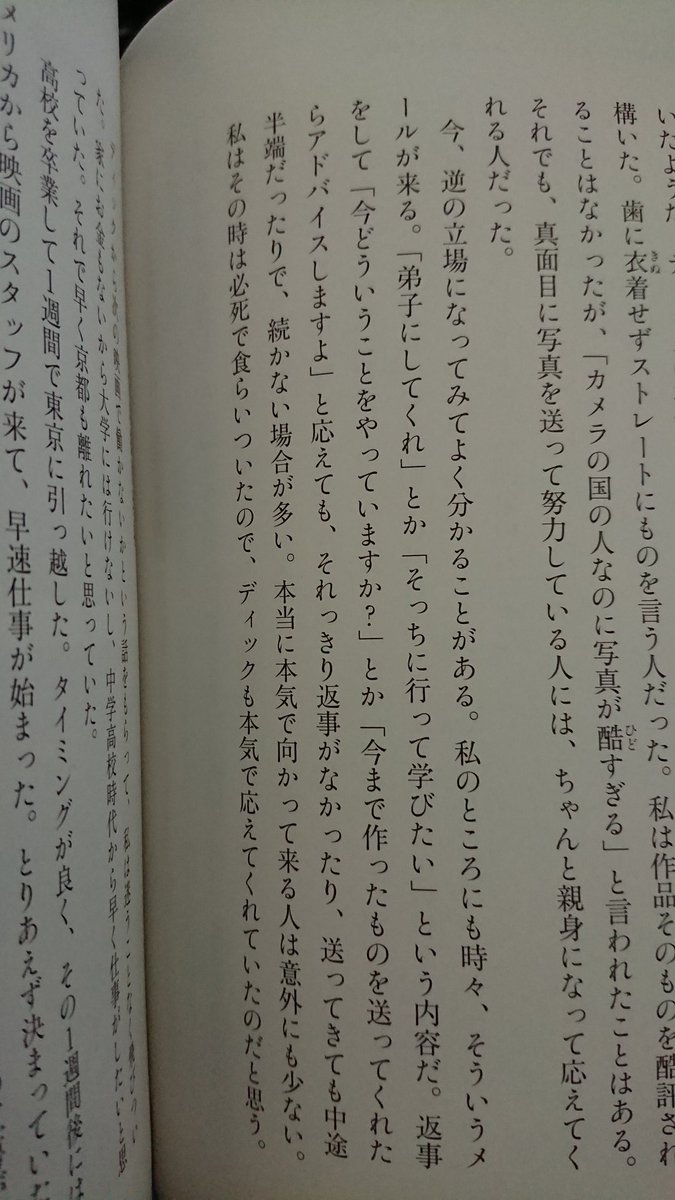 いたようだ
構いた。歯に衣着せずストレートにものを言う人だった。私は作品そのものを酷評され
ることはなかったが、「カメラの国の人なのに写真が酷すぎる」と言われたことはある。
それでも、真面目に写真を送って努力している人には、ちゃんと親身になって応えてく
れる人だった。
今、逆の立場になってみてよく分かることがある。私のところにも時々、そういうメ
ールが来る。「弟子にしてくれ」とか「そっちに行って学びたい」という内容だ。返事
をして「今どういうことをやっていますか?」とか「今まで作ったものを送ってくれた
らアドバイスしますよ」と応えても、それっきり返事がなかったり、送ってきても中途
半端だったりで、続かない場合が多い。本当に本気で向かって来る人は意外にも少ない。
私はその時は必死で食らいついたので、ディックも本気で応えてくれていたのだと思う。
映画で働かないかという話をもらって、私は迷うことなく飛びつい
た。家にも金もないから大学には行けないし、中学高校時代から早く仕事がしたいと思
っていた。それで早く京都も離れたいと思っていた。
高校を卒業して1週間で東京に引っ越した。タイミングが良く、その1週間後には
メリカから映画のスタッフが来て、早速仕事が始まった。とりあえず決まってい